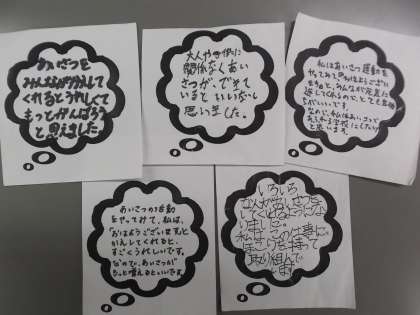 あいさつを
みんながかえして
くれるとうれしくて
もっとがんばろう
と思えました
大人や
関係なくあい
さつが、できて
いるといいな、と
思いました。
私はあいさつ運動を
やってみて「おはようござい
ます」と、みんなが元気に
返してくれるので、とても気持
ちがいいです。
なので、私はあいさつで
あふれる学校にしたいな
と思います。
あいさつの活動
をやってみて、私は、
「おはようございます」と
かえしてくれると、
すごくうれしいです。
なので、あいさつが
もっと増えるといいです。
いろいろ
な人があいさつを
してくれるようにな
りました。
私はこの仕事に
ほこりを持って
取り組んで
います